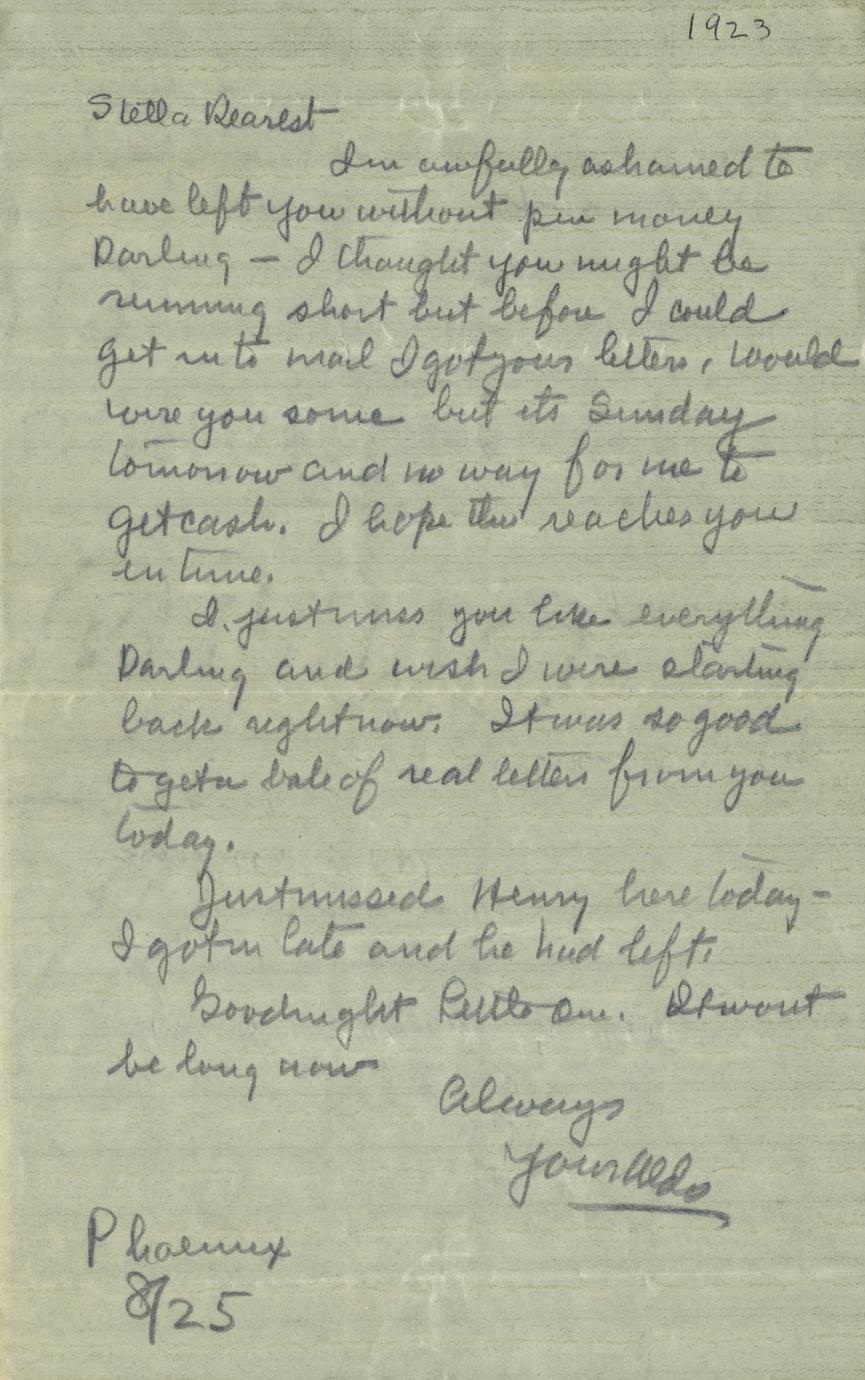 1923
Stella Dearest
Im awfully ashamed to
have left you without pin money
Darling — I thought you might be
running short but before I could
get in to mail I got your letters, would
wire you some but its Sunday
tomorrow and no way for me to
get cash. I hope this reaches you
in time.
I just miss you like everything
Darling and wish I were starting
back right now. It was so good
to get a bale of real letters from you
today.
Just missed Henry here today -
I got in late and he had left.
Goodnight Little One. It wont
be long now
Always
Your Aldo
Phoenix
8/25